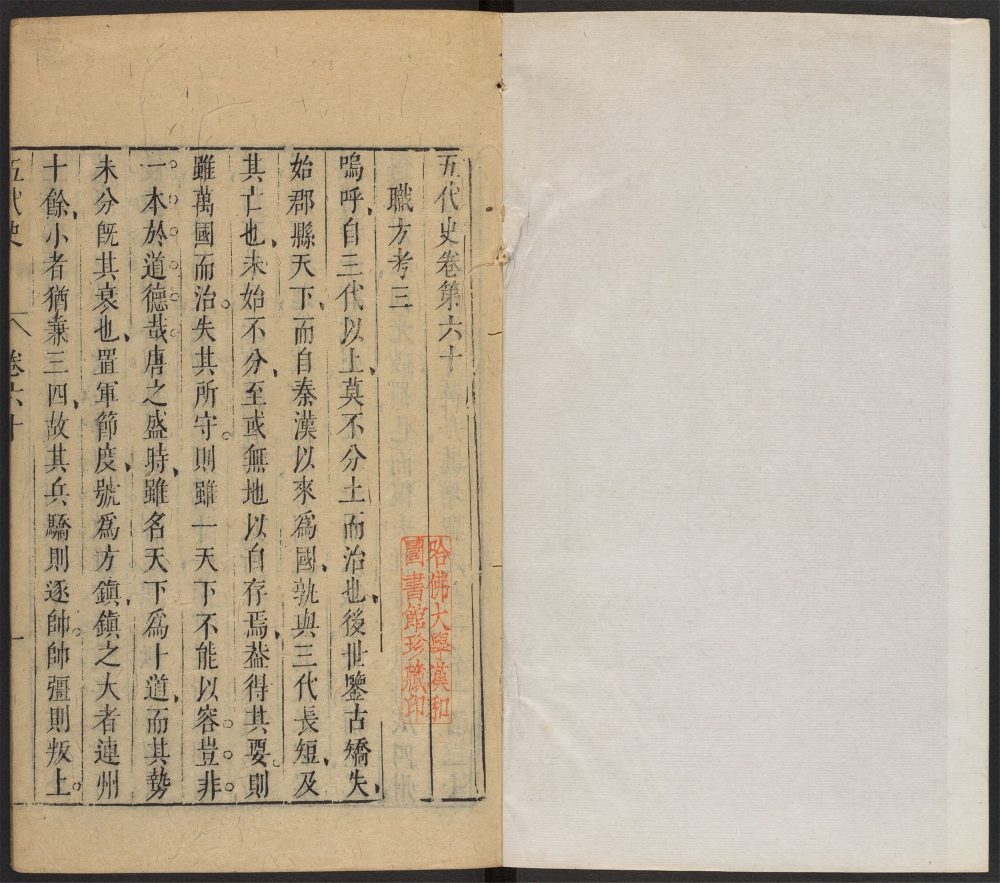 五代史卷第六十
職方考三
嗚呼、自三代以上、莫不分土而治也、後世鑒古矯失、
始郡縣天下、而自秦漢以來爲國、孰與三代長短、及
其亡也、未始不分、至或無地以自存焉、葢得其要、則
雖萬國而治。失其所守。則雖一天下不能以容。豈非。
一本於道德哉。唐之盛時、雖名天下爲十道、而其勢
未分旣其衰也、置軍節度、號爲方鎭、鎭之大者連州
十餘、小者猶兼三四、故其兵驕則逐帥。帥彊則叛上。
五代史
卷六十
一
哈佛大學漢和
圖書館珍藏印